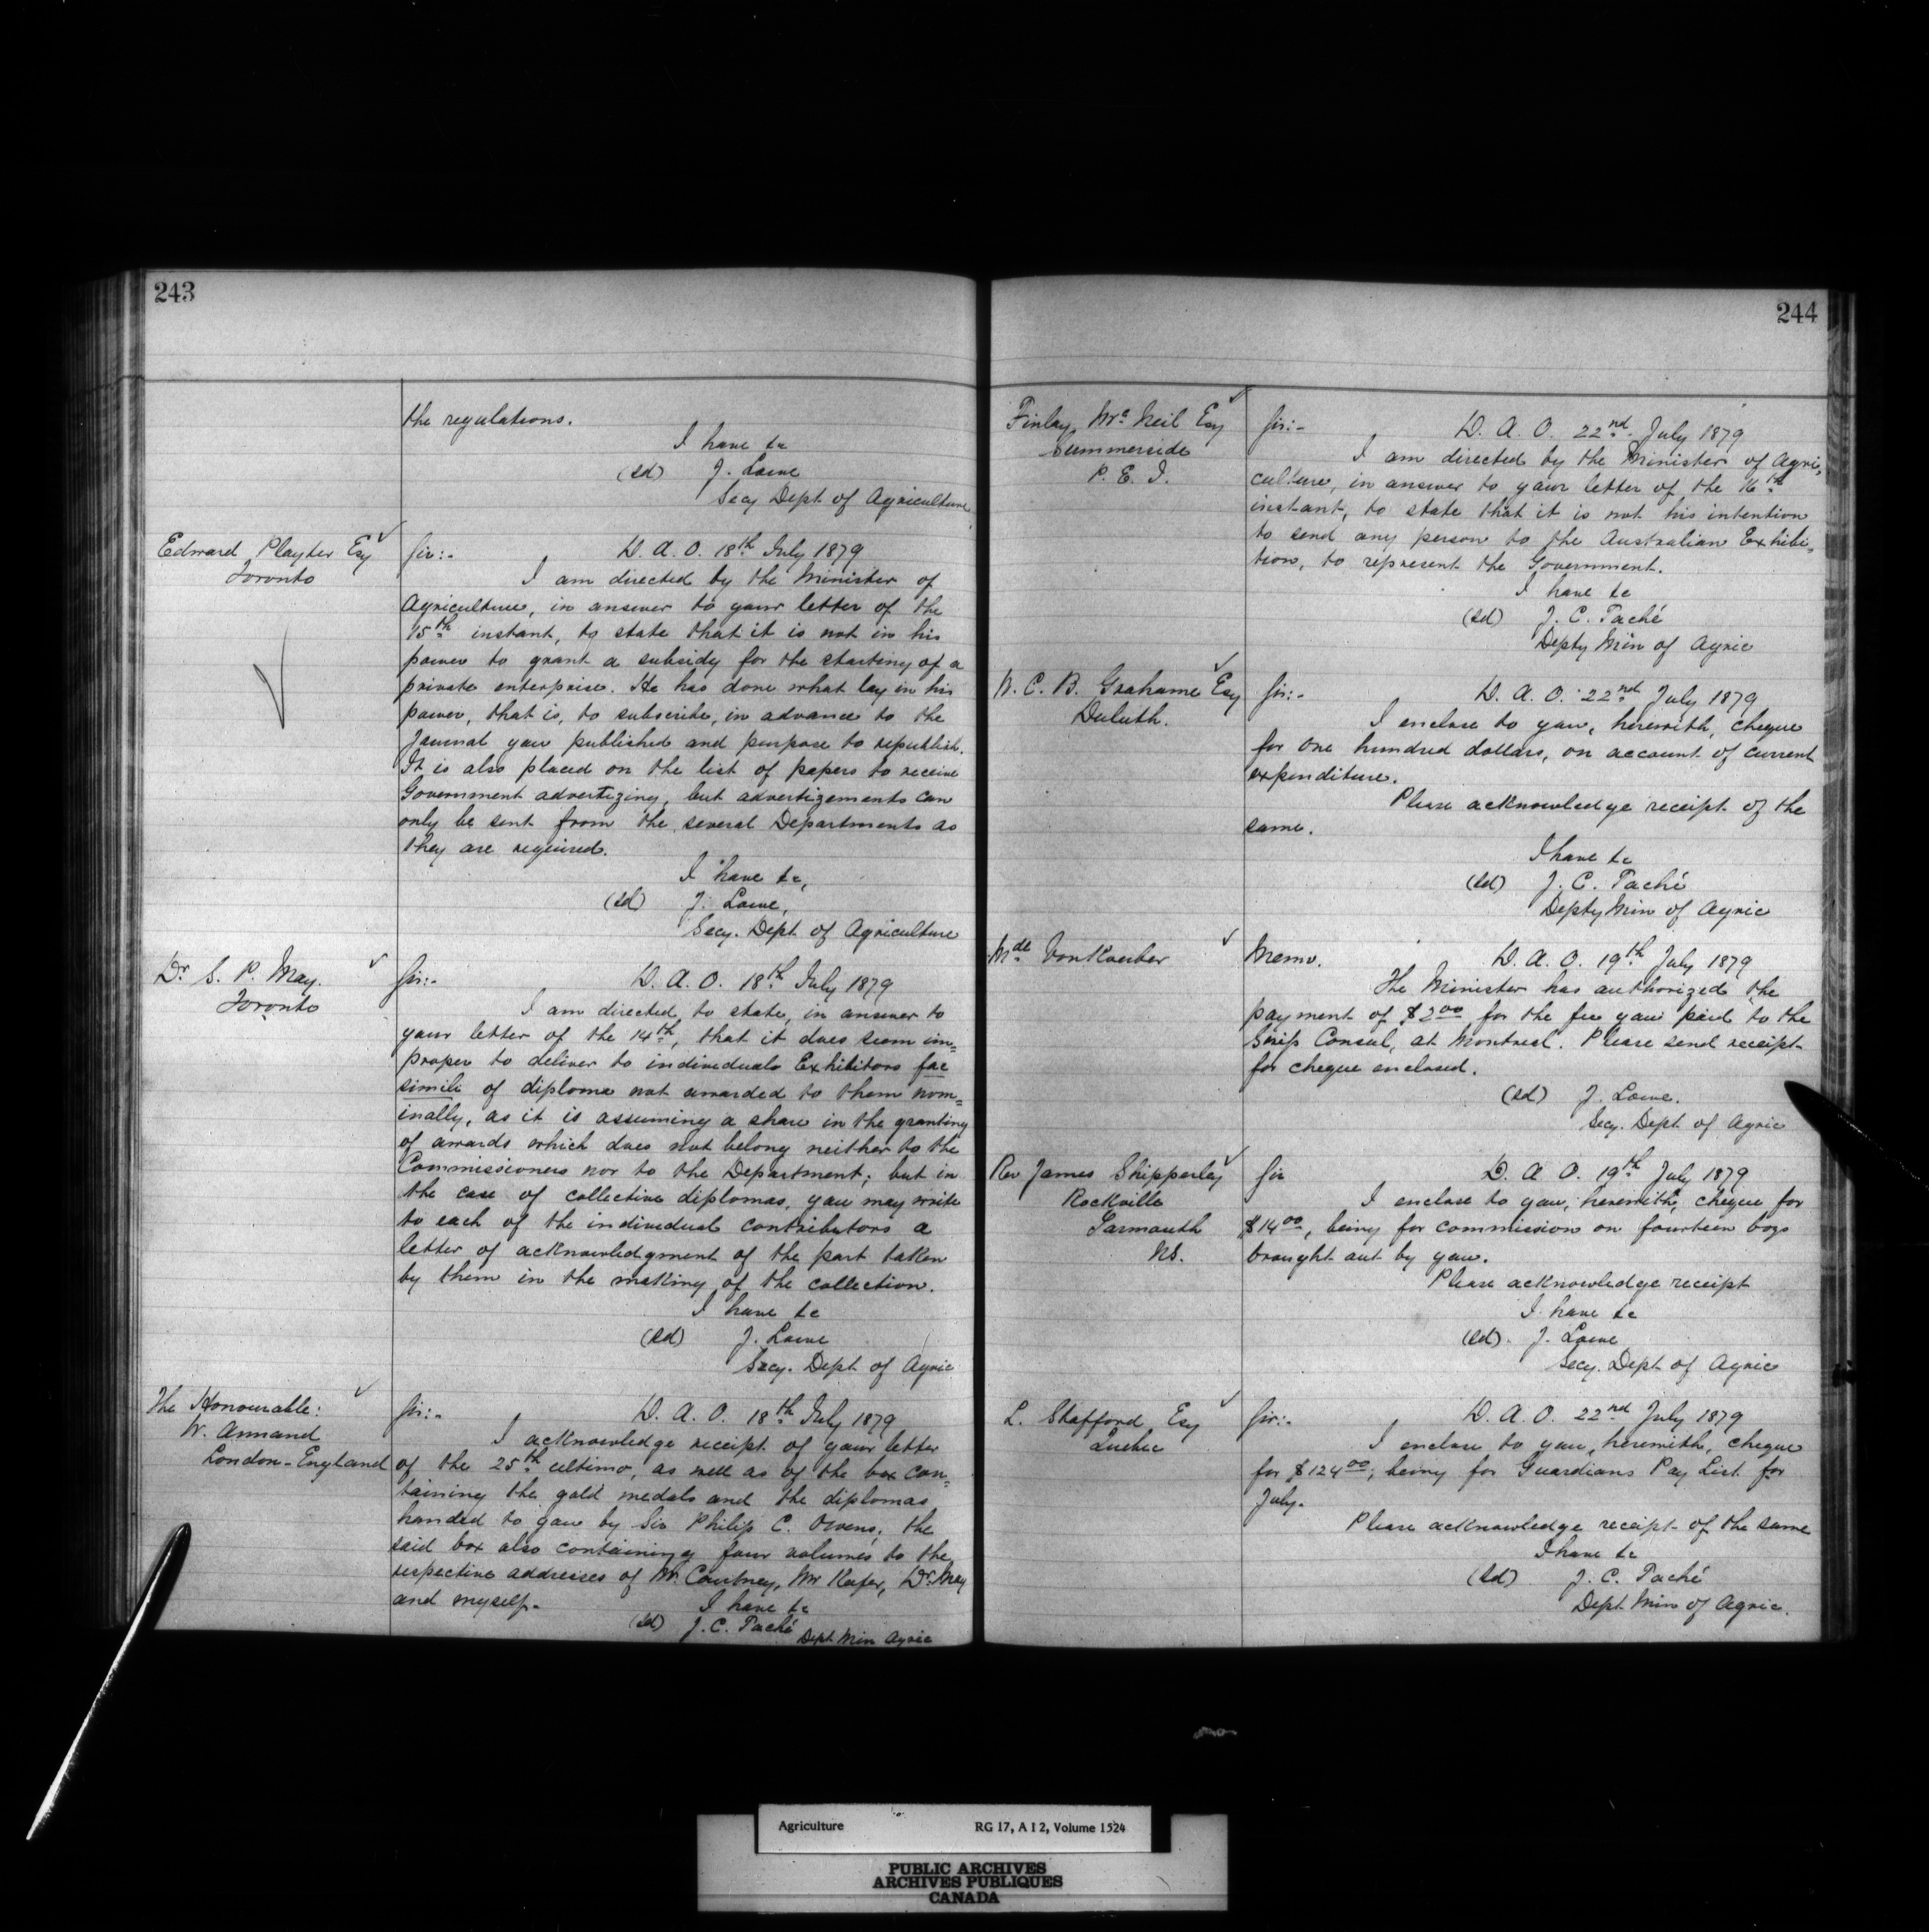 243
the regulations.
I have &c
(sd) J. Lowe
Secy Dept of Agriculture
Edward Playter Esq
Toronto
Sir:- D. A. O. 18th July 1879
I am directed by the Minister of
Agriculture, in answer to your letter of the
15th instant, to state that it is not in his
power to grant a subsidy for the starting of a
private enterprise. He has done what lay in his
power, that is, to subscribe, in advance to the
Journal you published and purpose to republish.
It is also placed on the list of papers to receive
Government advertizing, but advertizements can
only be sent from the several Departments as
they are required.
I have &c,
(sd) J. Lowe,
Secy. Dept of Agriculture
Dr. S. P. May.
Toronto
Sir:- D. A. O. 18th July 1879
I am directed, to state, in answer to
your letter of the 14th, that it does seem im=
proper to deliver to individuals Exhibitors fac
simili of diploma not awarded to them nom=
inally, as it is assuming a share in the granting
of awards which does not belong neither to the
Commissioners nor to the Department; but in
the case of collective diplomas, you may write
to each of the individual contributors a
letter of acknowledgment of the part taken
by them in the making of the collection.
I have &c
(sd) J. Lowe
Secy. Dept of Agric
The Honourable:
W. Annand
London-England
Sir:- D. A. O. 18th July 1879
I acknowledge receipt of your letter
of the 25th ultimo, as well as of the box con=
taining the gold medals and the diplomas
handed to you by Sir Philip C. Owens; the
said box also containing four volumes to the
respective addresses of Mr. Courtney, Mr Keefer, Dr. May
and myself.
I have &c
(sd) J. C. Taché Dept. Min Agric
244
Finlay McNeil Esq
Summerside
P. E. I.
Sir:- D. A. O. 22nd July 1879
I am directed by the Minister of Agri=
culture, in answer to your letter of the 16th
instant, to state that it is not his intention
to send any person to the Australian Exhibi=
tion, to represent the Government.
I have &c
(sd) J. C. Taché
Depty Min of Agric
W. C. B. Grahame Esq
Duluth.
Sir:- D. A. O. 22nd July 1879
I enclose to you, herewith, cheque
for one hundred dollars, on account of current
expenditure.
Please acknowledge receipt of the
same.
I have &c
(sd) J. C. Taché
Depty Min of Agric
Mde VonKoerber
Memo. D. A. O. 19th July 1879
The Minister has authorized the
payment of $2.00 for the fee you paid to the
Swiss Consul, at Montreal. Please send receipt
for cheque enclosed.
(sd) J. Lowe.
Secy. Dept of Agric
Rev James Shipperley
Rockville
Yarmouth
NS.
Sir D. A. O. 19th July 1879
I enclose to you, herewith, cheque for
$14.00, being for commission on fourteen boys
brought out by you.
Please acknowledge receipt
I have &c
(sd). J. Lowe
Secy. Dept of Agric
L. Stafford Esq
Quebec
Sir:- D. A. O. 22nd July 1879
I enclose to you, herewith, cheque
for $124.00, being for Guardians Pay List for
July.
Please acknowledge receipt of the same
I have &c
(sd) J. C. Taché
Dept Min of Agric.
Agriculture RG 17, A I 2, Volume 1524
PUBLIC ARCHIVES
ARCHIVES PUBLIQUES
CANADA